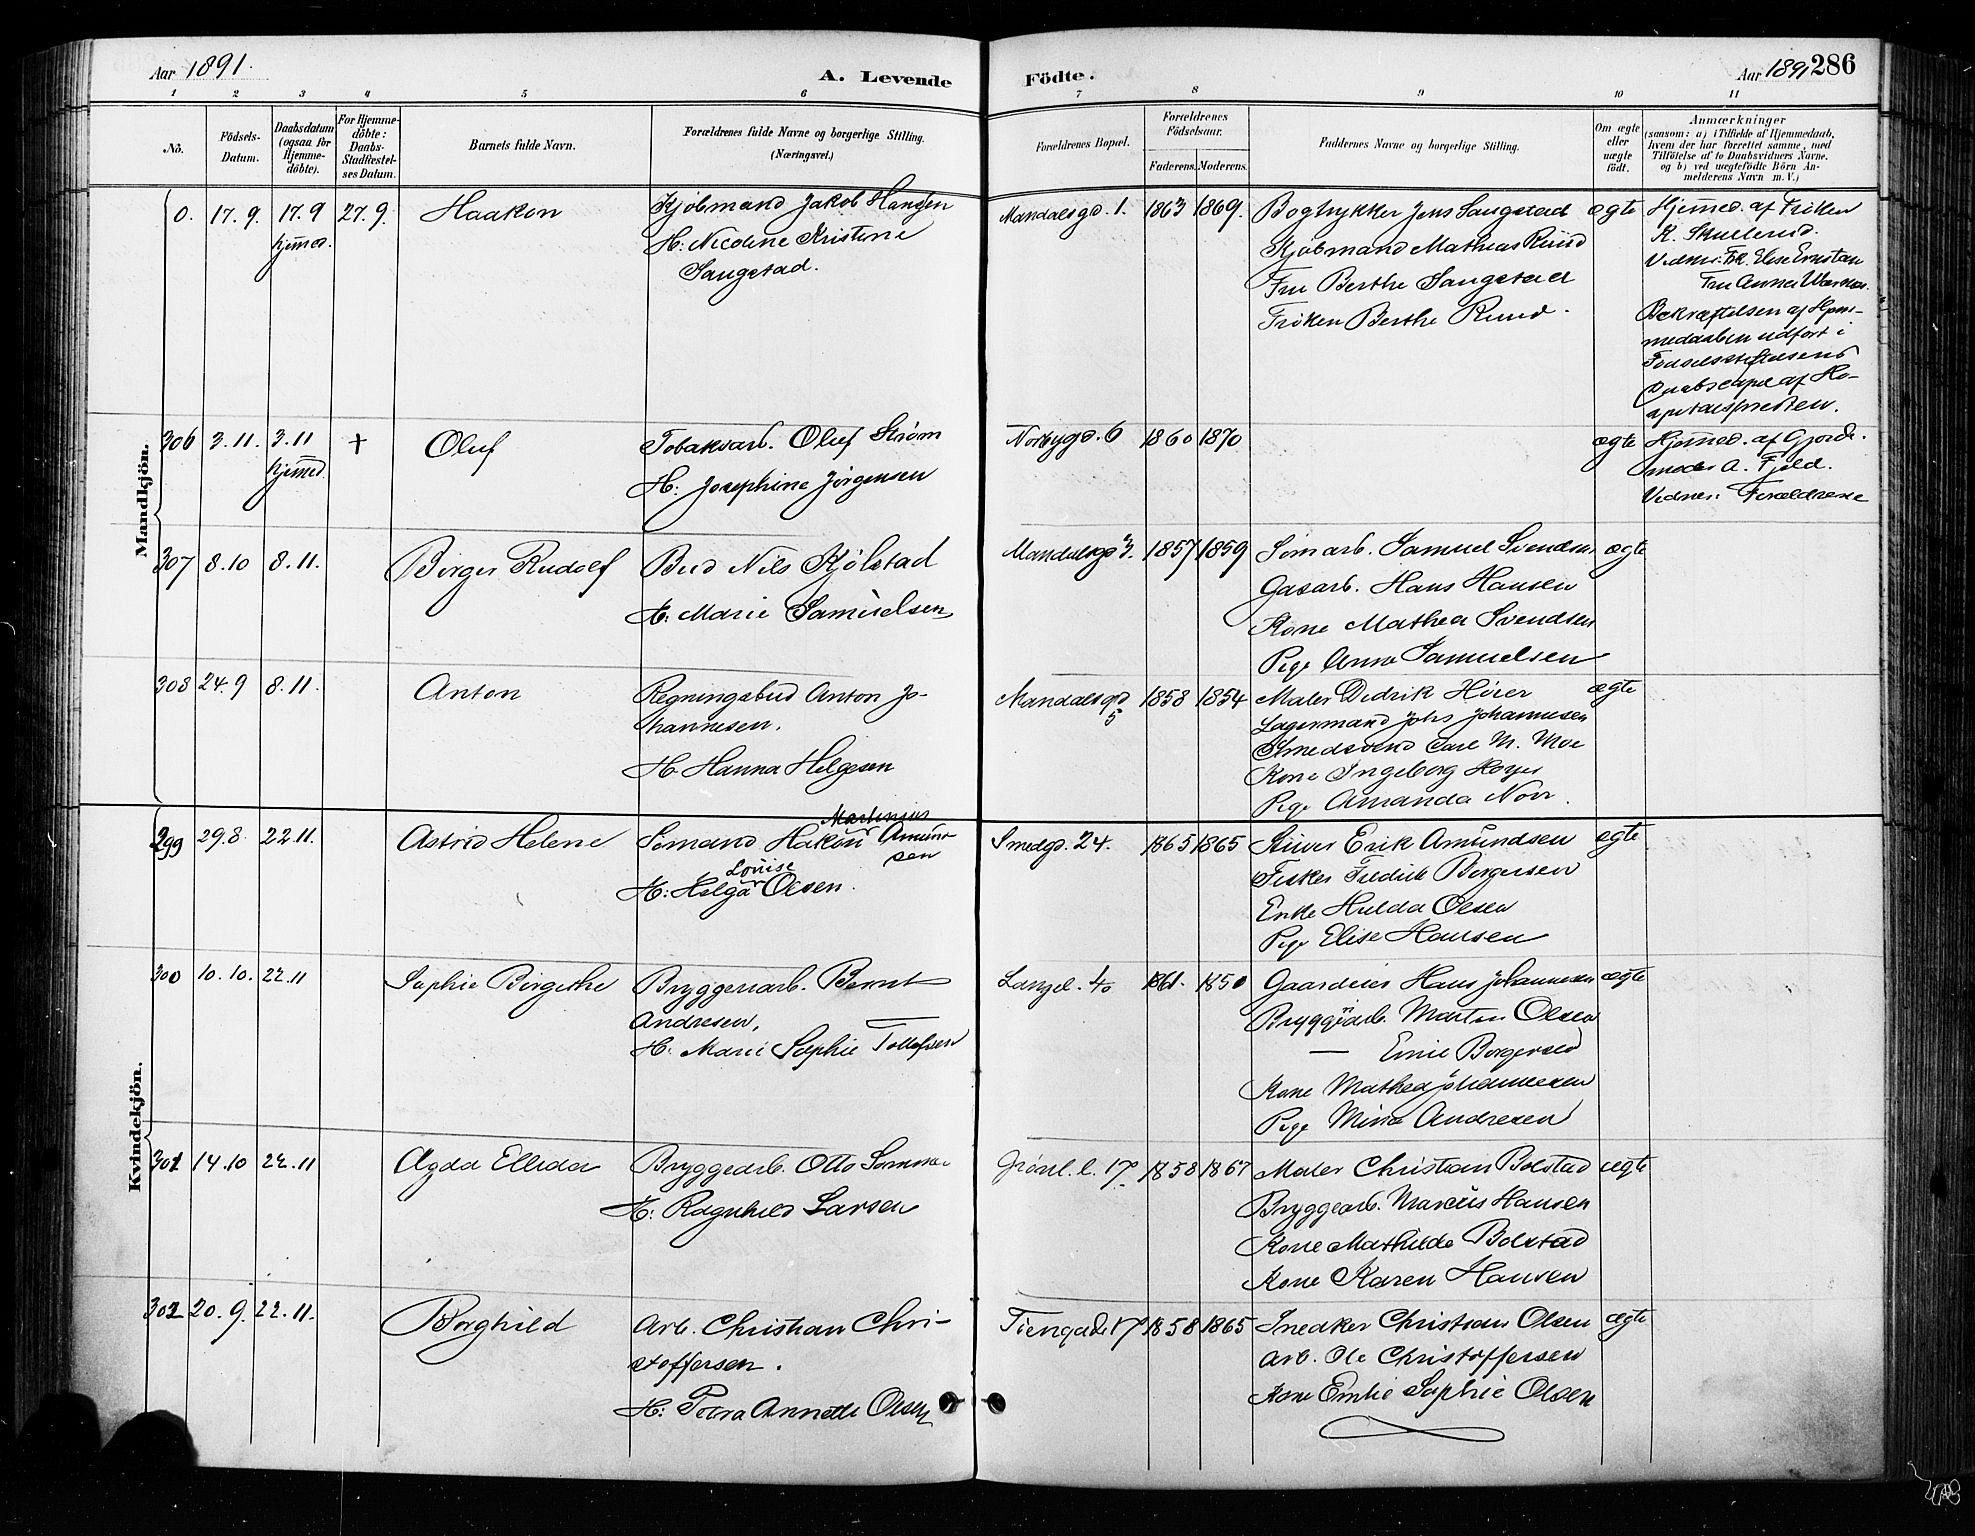 Aar 1891.
A. Levende
Födte.
Aar 1891 286
1 2 3 4 5 6 7 8 9 10 11
No.
Födsels-
Datum.
Daabsdatum
(ogsaa for
Hjemme-
döbte).
For Hjemme-
döbte:
Daabs-
Stadfestel-
ses Datum.
Barnets fulde Navn.
Forældrenes fulde Navne og borgerlige Stilling.
(Næringsvei.)
Forældrenes Bopæl.
Forældrenes
Födselsaar.
Faderens. Moderens.
Faddernes Navne og borgerlige Stilling.
Om ægte
eller
uægte
födt.
Anmærkninger
(saasom: a) i Tilfælde af Hjemmedaab,
hvem der har forrettet samme, med
Tilföielse af to Daabsvidners Navne,
og b) ved uægtefödte Börn An-
melderens Navn m. V.)
Mandkjön.
0. 17.9. 17.9 27.9.
hjemmed.
Haakon
Kjøbmand Jakob Hansen
H: Nicoline Kristine
Saugstad.
Mandalsgd. 1.
1863 1869.
Bogtrykker Jens Saugstad
Kjøbmand Mathias Ruud
Fru Berthe Saugstad
Frøken Berthe Ruud.
ægte
Hjemmed. af Frøken
K. Skullerud.
Vidner: Frk. Elise
Fru Anna
Bekræftelsen af Hjem-
medaaben udført i
Fødselsstiftelsens
Daabscapel af Ho-
spitalspresten.
306 3.11. 3.11 +
hjemmed.
Oluf
Tobaksarb. Oluf Strøm
H: Josephine Jørgensen
Norbygd. 6
1860 1870
ægte
Hjemmed. af Gjorde-
moder A. Fjeld.
Vidner: Forældrene
307 8.10 8.11.
Birger Rudolf
Bud Nils Kjølstad
H: Marie Samuelsen
Mandalsgd 3.
1857 1859
Sømarb. Samuel Svendsen
Gasarb. Hans Hansen
Kone Mathea Svendsen
Pige Anna Samuelsen
ægte
308 24.9 8.11.
Anton
Regningsbud Anton Jo-
hannesen.
H. Hanna Helgesen
Mandalsgd
5
1858 1854
Maler Didrik Høier
Lagermand Johs Johannesen
Smedsvend Carl M. Moe
Kone Ingeborg Høyer
Pige Amanda
ægte
Kvindekjön.
299 29.8. 22.11.
Astrid Helene
Martinius
Sømand Hakon Amund-
sen
Louise
H: Helga Olsen.
Smedgd. 24.
1865 1865
Stuver Erik Amundsen
Fisker Fredrik Borgersen
Enke Hulda Olsen
Pige Elise Hansen
ægte
300 10.10. 22.11
Sophie Birgethe
Bryggeriarb. Bernt
Andresen,
H: Marie Sophie Tollefsen
Langel. 40
1861. 1850
Gaardeier Hans Johannesen
Bryggearb. Martin Olsen
— Emil Borgersen
Kone Mathea Johannesen
Pige Mina Andresen
ægte
301 14.10 22.11
Agda Ellida
Bryggearb. Otto Sommer
H: Ragnhild Larsen
Grønl. l. 17
1858 1867
Maler Christian Bolstad
Bryggearb. Marcus Hansen
Kone Mathilde Bolstad
Kone Karen Hansen
ægte
302 20.9. 22.11.
Borghild
Arb. Christian Chri-
stoffersen.
H: Petra Annette Olsen
Tiengade 17
1858 1865
Snedker Christian Olsen
Arb. Ole Christoffersen
Kone Emilie Sophie Olsen
ægte